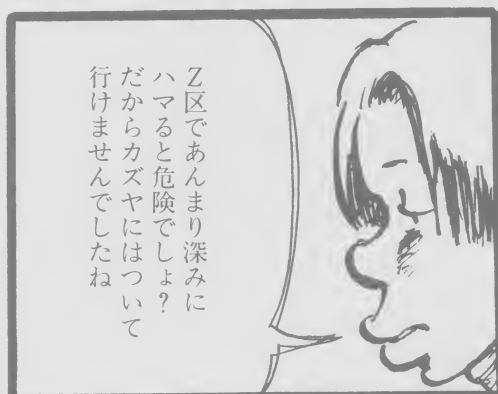 Z区であんまり深みに
ハマると危険でしょ?
だからカズヤにはついて
行けませんでしたね